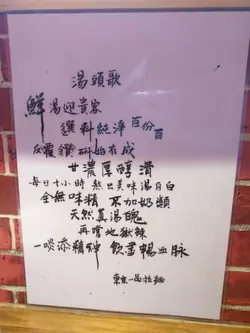 湯頭歌
鮮湯迎貴客
選料純淨百份百
反覆鑽研始有成
甘濃厚醇滑
每日十小時 熬出美味湯月白
全無味精 不加奶類
天然真湯魄
再嚐地獄辣
一啖添精神 飲盡暢血脈
東京一品拉麵